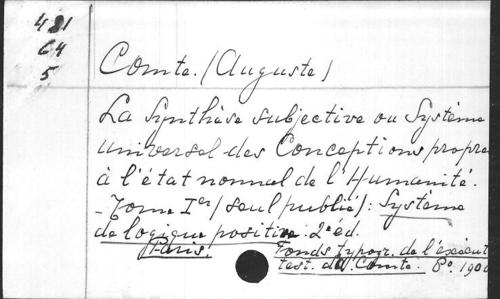 481
64
5
Comte. (Auguste)
La Synthèse subjective ou Système
universel des Conceptions propre
à l'état normal de l'Humanité.
- Tome Ier (seul publié): Système
de logique positive. 2e éd.
Paris. Fonds typogr. de l'exécut
test. d'A. Comte. 8º. 1900